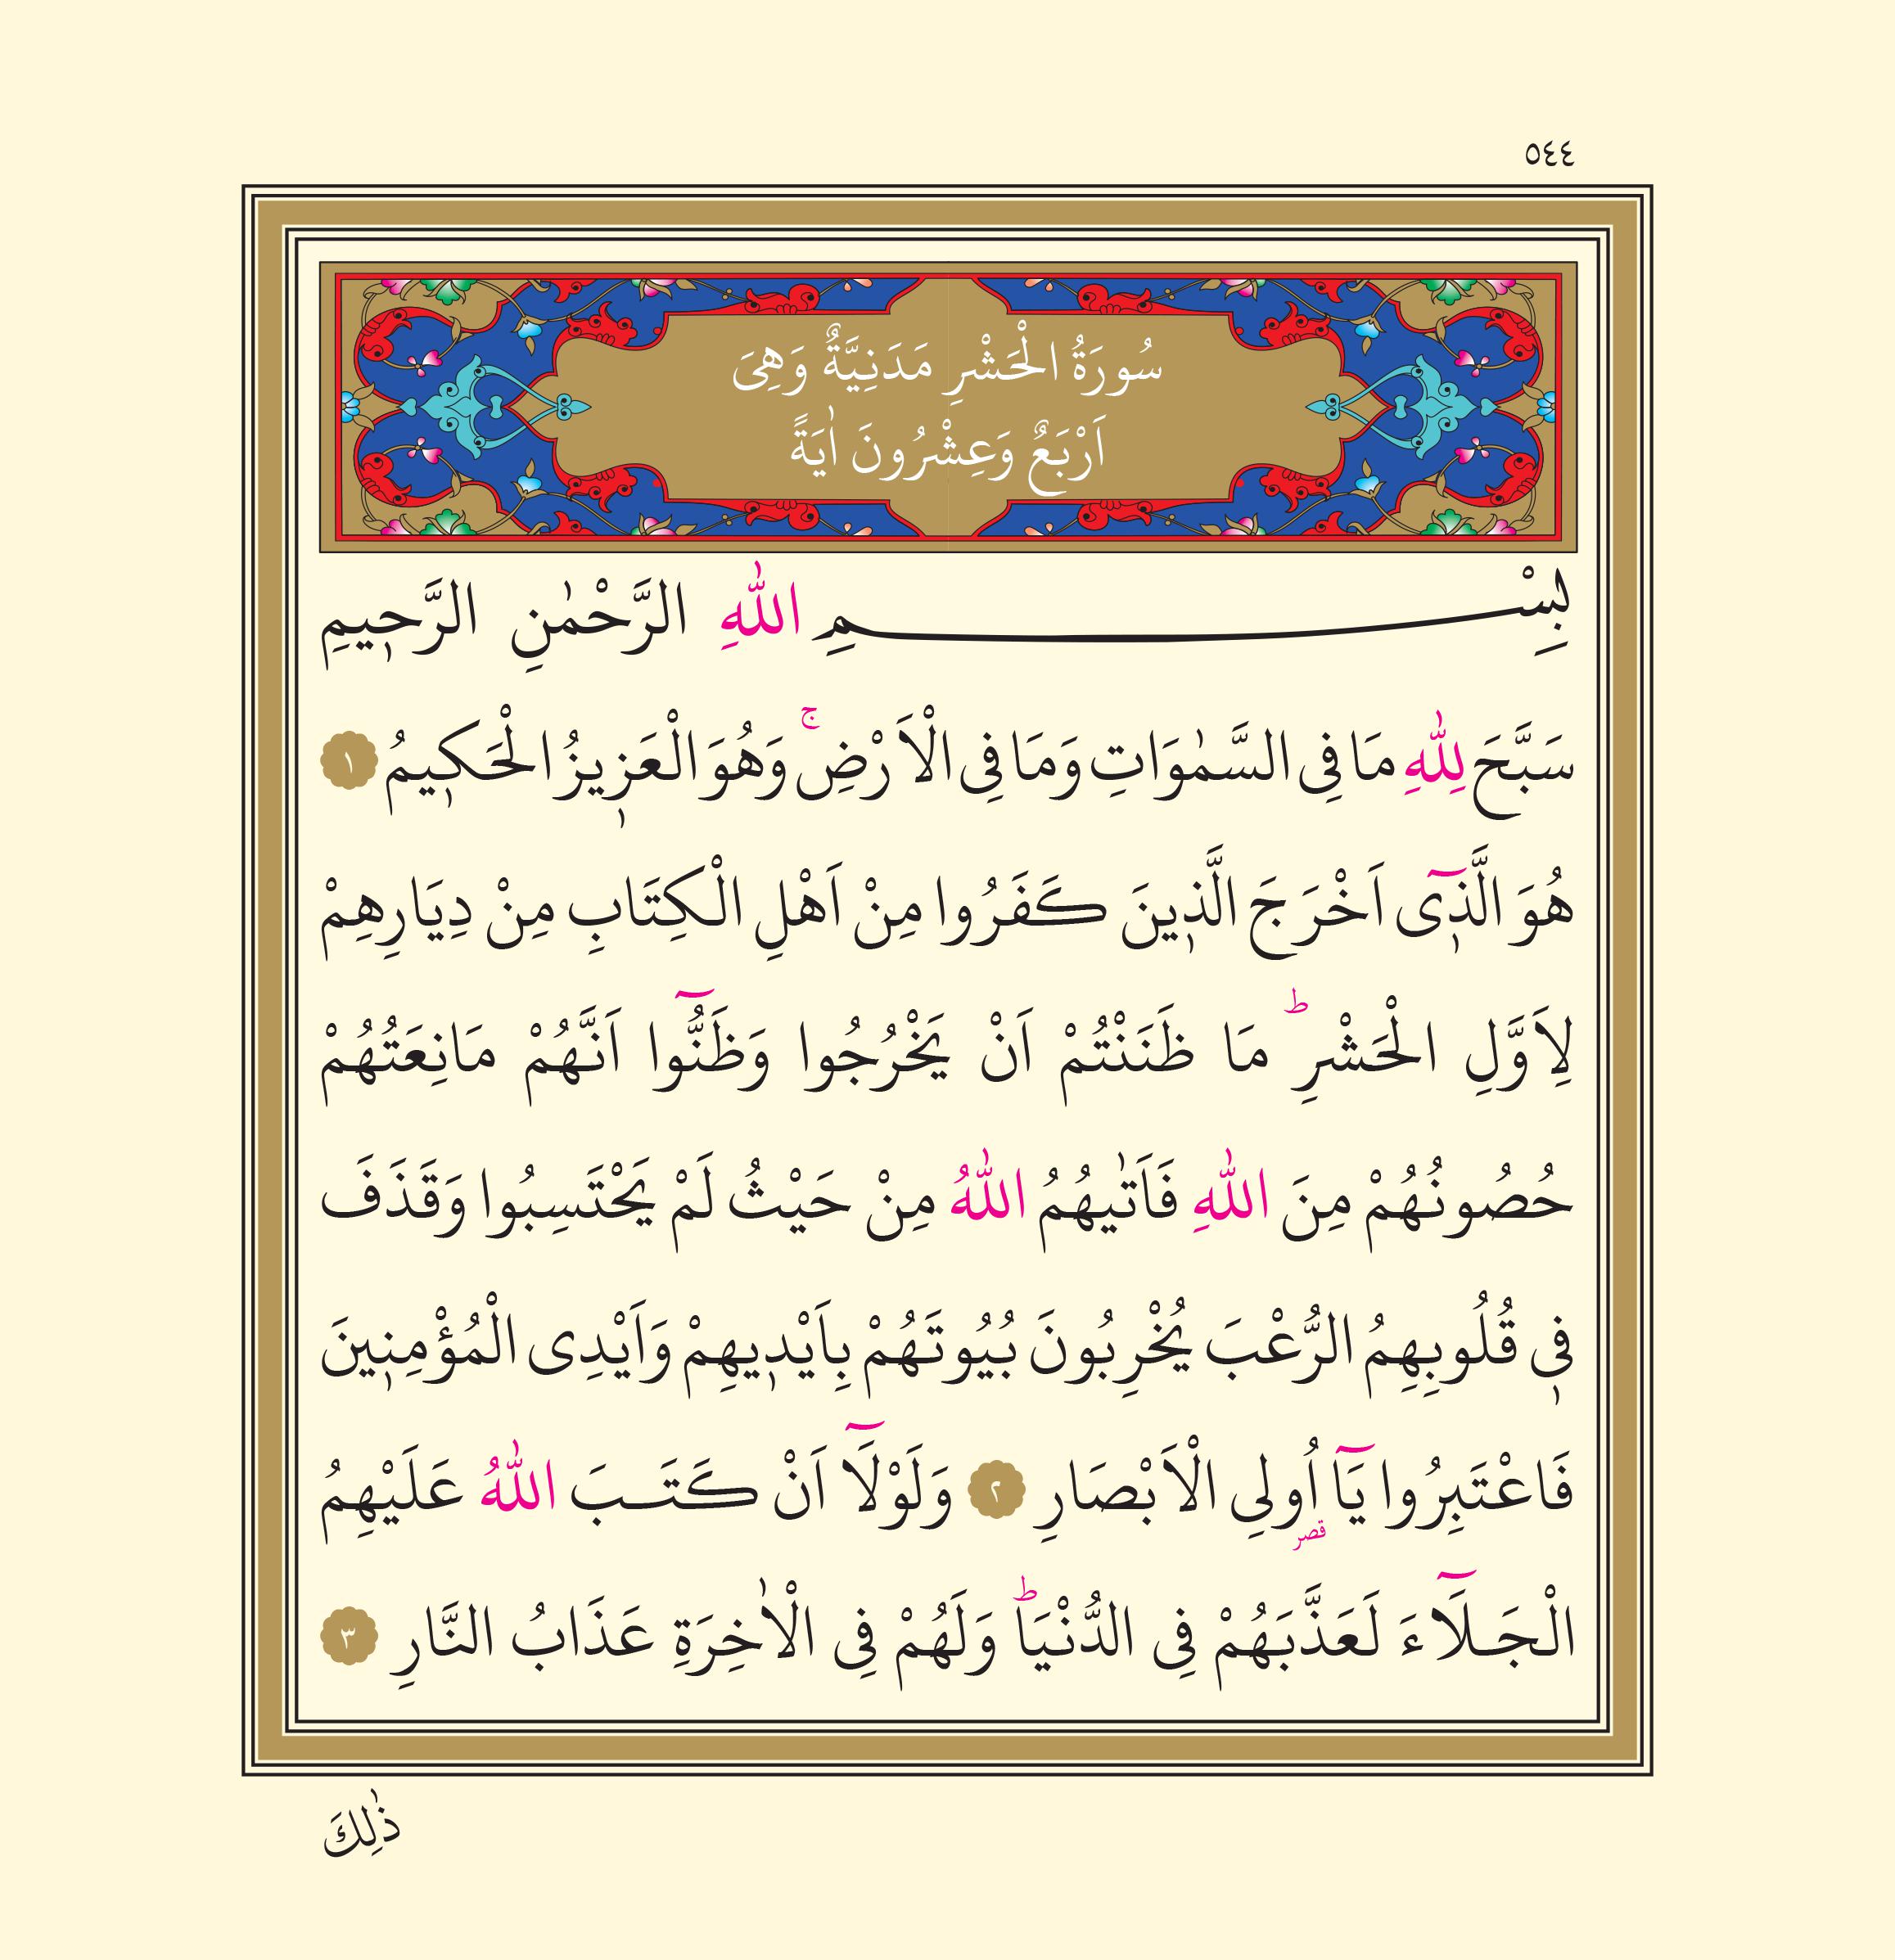 ٥٤٤
سُورَةُ الْحَشْرِ مَدَنِيَّةٌ وَهِىَ
اَرْبَعٌ وَعِشْرُونَ اٰيَةً
بِسْمِ اللّٰهِ الرَّحْمٰنِ الرَّحٖيمِ
سَبَّحَ لِلّٰهِ مَا فِى السَّمٰوَاتِ وَمَا فِى الْاَرْضِۚ وَهُوَ الْعَزٖيزُ الْحَكٖيمُ ١
هُوَ الَّذٖٓى اَخْرَجَ الَّذٖينَ كَفَرُوا مِنْ اَهْلِ الْكِتَابِ مِنْ دِيَارِهِمْ
لِاَوَّلِ الْحَشْرِؕ مَا ظَنَنْتُمْ اَنْ يَخْرُجُوا وَظَنُّٓوا اَنَّهُمْ مَانِعَتُهُمْ
حُصُونُهُمْ مِنَ اللّٰهِ فَاَتٰيهُمُ اللّٰهُ مِنْ حَيْثُ لَمْ يَحْتَسِبُوا وَقَذَفَ
فٖى قُلُوبِهِمُ الرُّعْبَ يُخْرِبُونَ بُيُوتَهُمْ بِاَيْدٖيهِمْ وَاَيْدِى الْمُؤْمِنٖينَ
فَاعْتَبِرُوا يَٓا اُولِى الْاَبْصَارِ ٢ وَلَوْلَٓا اَنْ كَتَبَ اللّٰهُ عَلَيْهِمُ
قصر
الْجَلَٓاءَ لَعَذَّبَهُمْ فِى الدُّنْيَاؕ وَلَهُمْ فِى الْاٰخِرَةِ عَذَابُ النَّارِ ٣
ذٰلِكَ